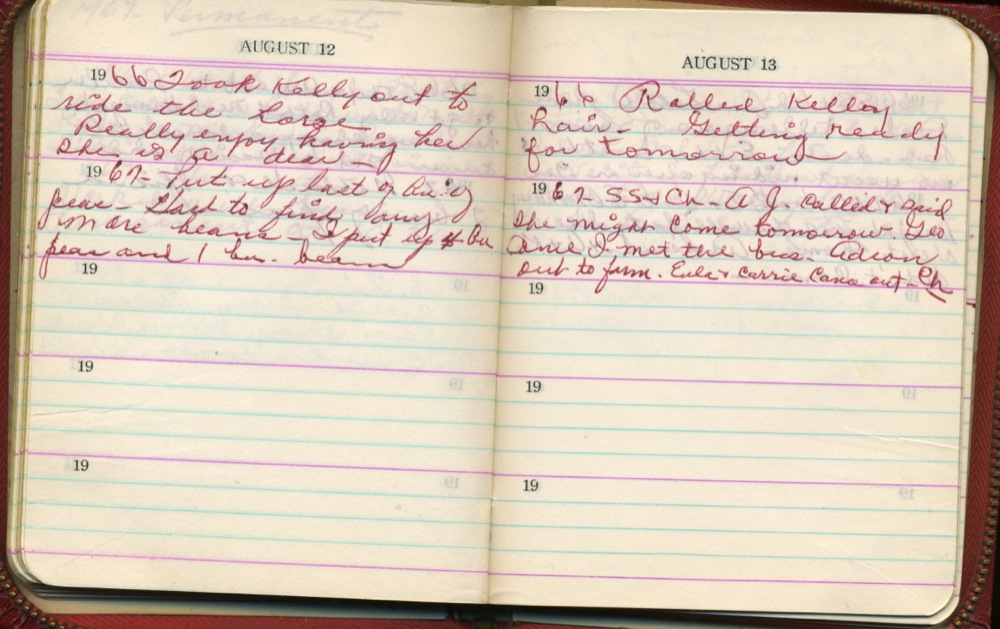 1967. Permanent
AUGUST 12
1966 Took Kelly out to
ride the horse
Really enjoy having her
she is a dear -
1967 - Put up last of
pear. Glad to find any
more beans - I put up bu
pear and 1 bu. beans
19
19
19
AUGUST 13
1966 Rolled Kelly
hair - Getting ready
for tomorrow
1967 SS + Ch - A J. called + said
she might come tomorrow. Geo
and I met the bus.
out to farm. + Carrie came out - Ch
19
19
19